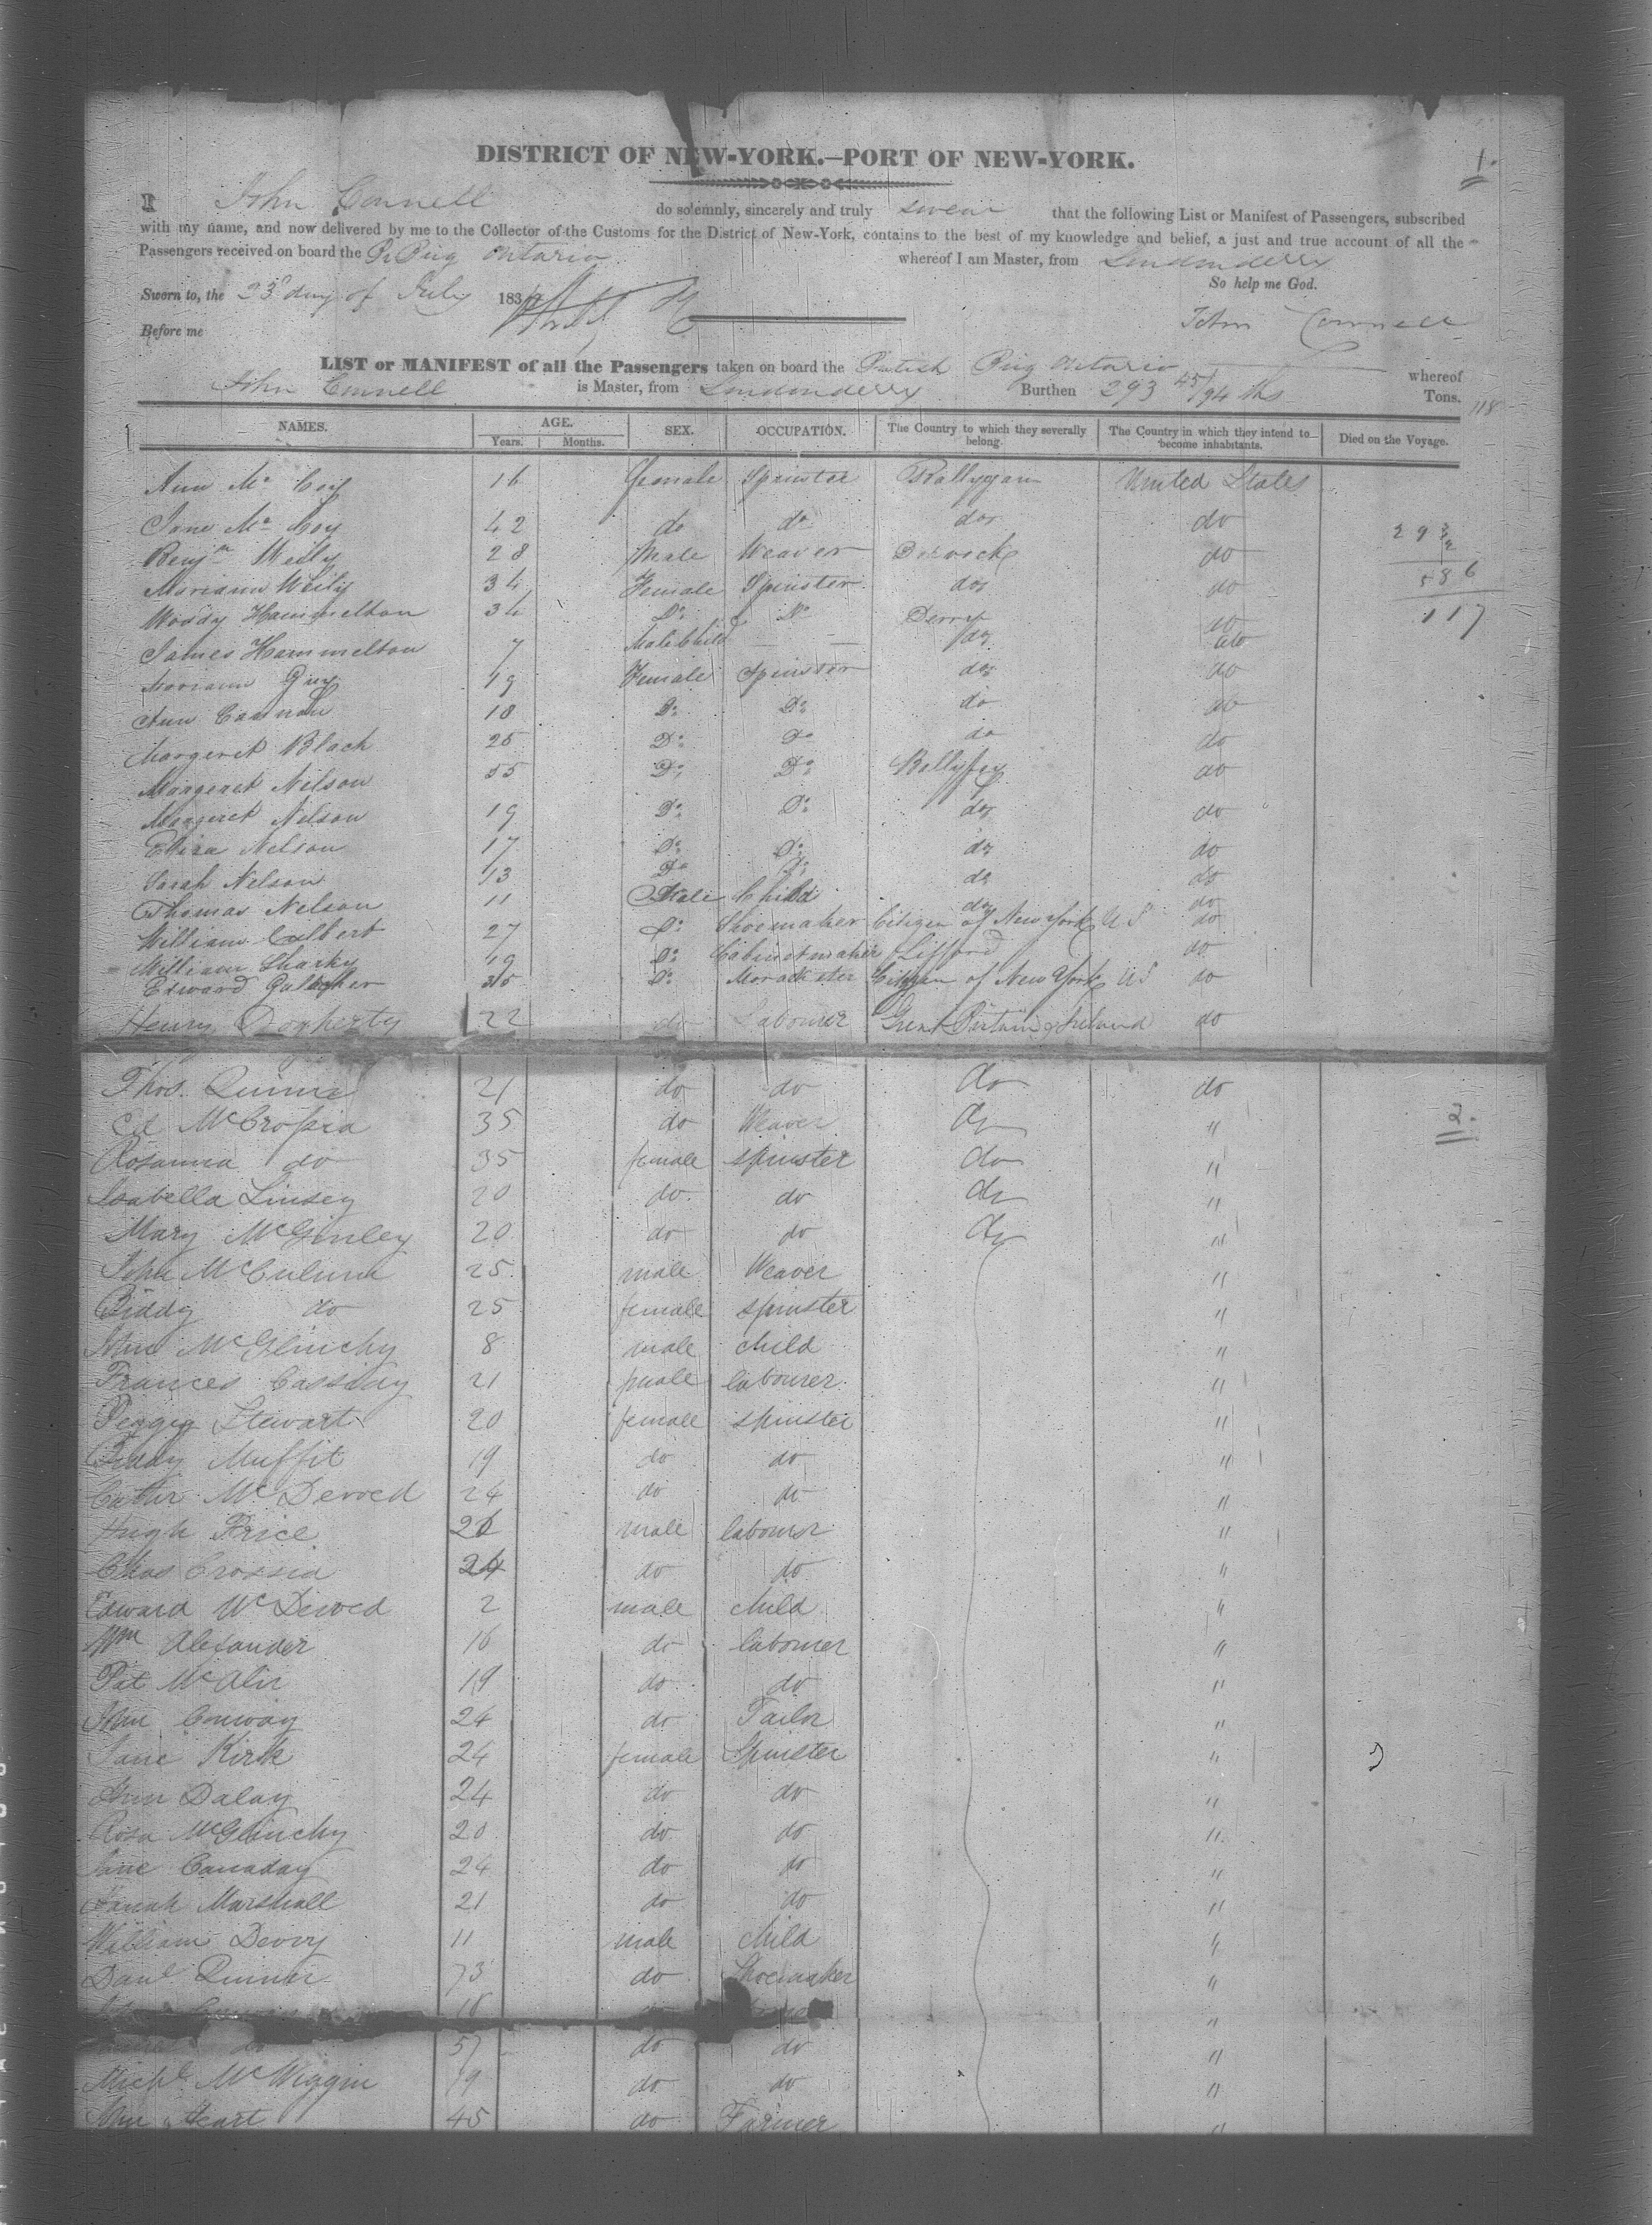 DISTRICT OF NEW-YORK.—PORT OF NEW-YORK.
1.
I John Connell do solemnly, sincerely and truly swear that the following List or Manifest of Passengers, subscribed
with my name, and now delivered by me to the Collector of the Customs for the District of New-York, contains to the best of my knowledge and belief, a just and true account of all the
Passengers received on board the Br Brig Ontario whereof I am Master, from Londonderry
So help me God.
Sworn to, the 23d day of July 183
Before me
John Connell
LIST or MANIFEST of all the Passengers taken on board the British Brig Ontario whereof
John Connell is Master, from Londonderry Burthen 293 45/94 ths Tons.
118
NAMES. AGE. SEX. OCCUPATION. The Country to which they severally belong. The Country in which they intend to become inhabitants. Died on the Voyage.
Years. Months.
Ann Mc Coy 16 female Spinster United States
Jane Mc Coy 42 do do do do
Benjn Weily 28 Male Weaver do
Mariann Weily 34 Female Spinster do do
Moody Hammelton 34 Do Do Derry do
James Hammelton 7 Male Child — — do do
Mariann Guy 19 Female Spinster do do
Ann Cannon 18 Do Do do do
Margeret Black 25 Do Do do do
Margeret Nelson 55 Do Do Ballyfey do
Margeret Nelson 19 Do Do do do
Eliza Nelson 17 Do Do do do
Sarah Nelson 13 Do Do do do
Thomas Nelson 11 Male Child do do
William Colbert 27 Do Shoemaker Citizen of New York US do
William Sharky 19 Do Cabinetmaker Lifford do
Edward Gallagher 35 Do Citizen of New York US do
Henry Dogherty 22 do Labourer Great Britain & Ireland do
293
2
586
117
Thos. Quinn 21 do do do do
McCrossia 35 do Weaver do "
2.
Rosanna do 35 female spinster do "
Isabella Linsey 20 do do do "
Mary McGinley 20 do do do "
John McCulum 25 male Weaver "
Biddy do 25 female spinster "
John McGlinchy 8 male child "
Frances Cassidy 21 male labourer "
Peggy Stewart 20 female spinster "
Biddy Muffit 19 do do "
Cathr McDevved 24 do do "
Hugh Price 26 male labourer "
Chas Crossia 24 do do "
Edward McDevved 2 male child "
Wm Alexander 16 do labourer "
Pat McAlir 19 do do "
John Conway 24 do Tailor "
Jane Kirk 24 female Spinster "
Ann Dalay 24 do do "
Rosa McGlinchy 20 do do "
Jane Canaday 24 do do "
Sarah Marshall 21 do do "
William Devry 11 male child "
Danl Quinn 73 do Shoemaker "
16 "
do 57 do do "
Michl McWiggin 19 do do "
John Heart 45 do Farmer "